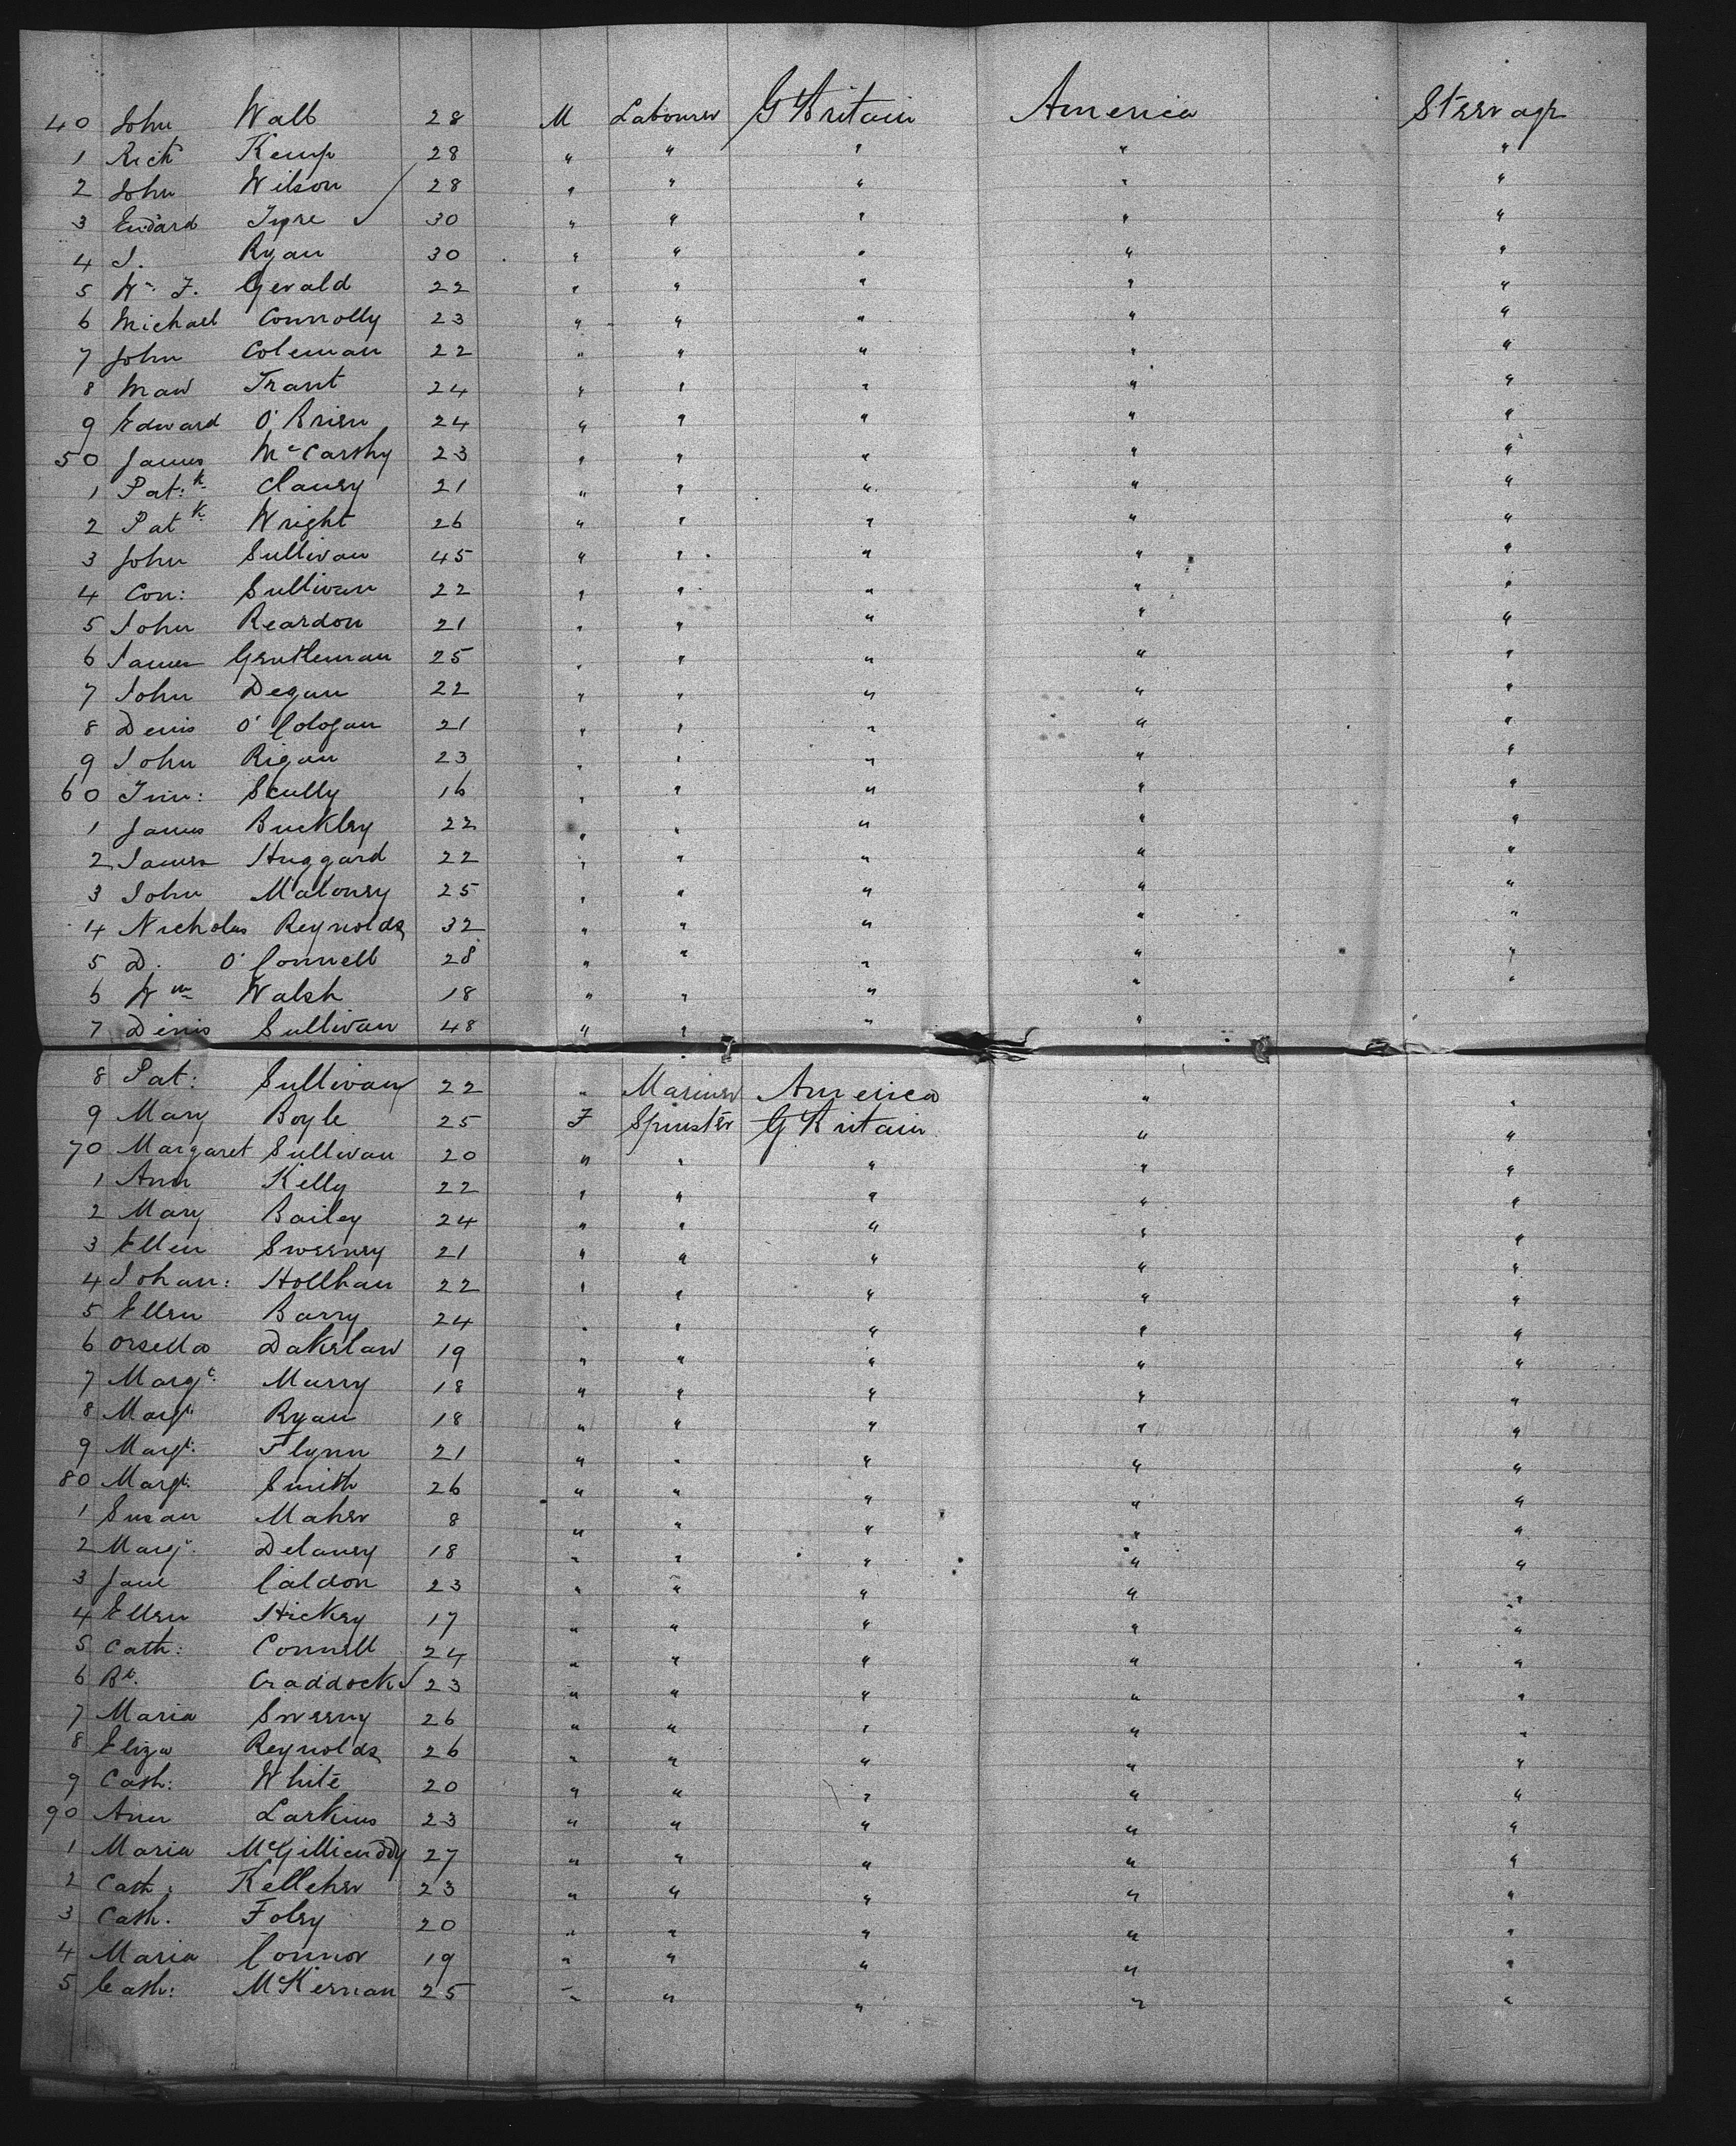 40 John Wall 28 M Labourer G Britain America Steerage
1 Rich Kemp 28 " " " " "
2 John Wilson 28 " " " " "
3 Edward Tyre 30 " " " " "
4 J. Ryan 30 " " " " "
5 Wm. F. Gerald 22 " " " " "
6 Michael Connolly 23 " " " " "
7 John Coleman 22 " " " " "
8 Maw Trant 24 " " " " "
9 Edward O'Brien 24 " " " " "
50 James McCarthy 23 " " " " "
1 Pat:k Clancy 21 " " " " "
2 Patk Wright 26 " " " " "
3 John Sullivan 45 " " " " "
4 Con: Sullivan 22 " " " " "
5 John Reardon 21 " " " " "
6 James Gentleman 25 " " " " "
7 John Degan 22 " " " " "
8 Denis O' 21 " " " " "
9 John Rigan 23 " " " " "
60 Scully 16 " " " " "
1 James Buckley 22 " " " " "
2 James Huggard 22 " " " " "
3 John Maloney 25 " " " " "
4 Nicholas Reynolds 32 " " " " "
5 D. O'Connell 28 " " " " "
6 Wm Walsh 18 " " " " "
7 Denis Sullivan 48 " " " "
8 Pat: Sullivan 22 " Mariner America " "
9 Mary Boyle 25 F Spinster G Britain " "
70 Margaret Sullivan 20 " " " " "
1 Ann Kelly 22 " " " " "
2 Mary Bailey 24 " " " " "
3 Ellen Sweeney 21 " " " " "
4 Johan: Hollhan 22 " " " " "
5 Ellen Barry 24 " " " " "
6 Orsella 19 " " " " "
7 Margt. Murry 18 " " " " "
8 Margt. Ryan 18 " " " " "
9 Margt. Flynn 21 " " " " "
80 Margt. Smith 26 " " " " "
1 Susan Maher 8 " " " " "
2 Margt. Delaney 18 " " " " "
3 Jane Caldon 23 " " " " "
4 Ellen Hickey 17 " " " " "
5 Cath: Connell 24 " " " " "
6 Bt. Craddock 23 " " " " "
7 Maria Sweeny 26 " " " " "
8 Eliza Reynolds 26 " " " " "
9 Cath: White 20 " " " " "
90 Ann Larkins 23 " " " " "
1 Maria McGillicuddy 27 " " " " "
2 Cath: Kelleher 23 " " " " "
3 Cath. Foley 20 " " " " "
4 Maria Connor 19 " " " " "
5 Cath: McKernan 25 " " " " "